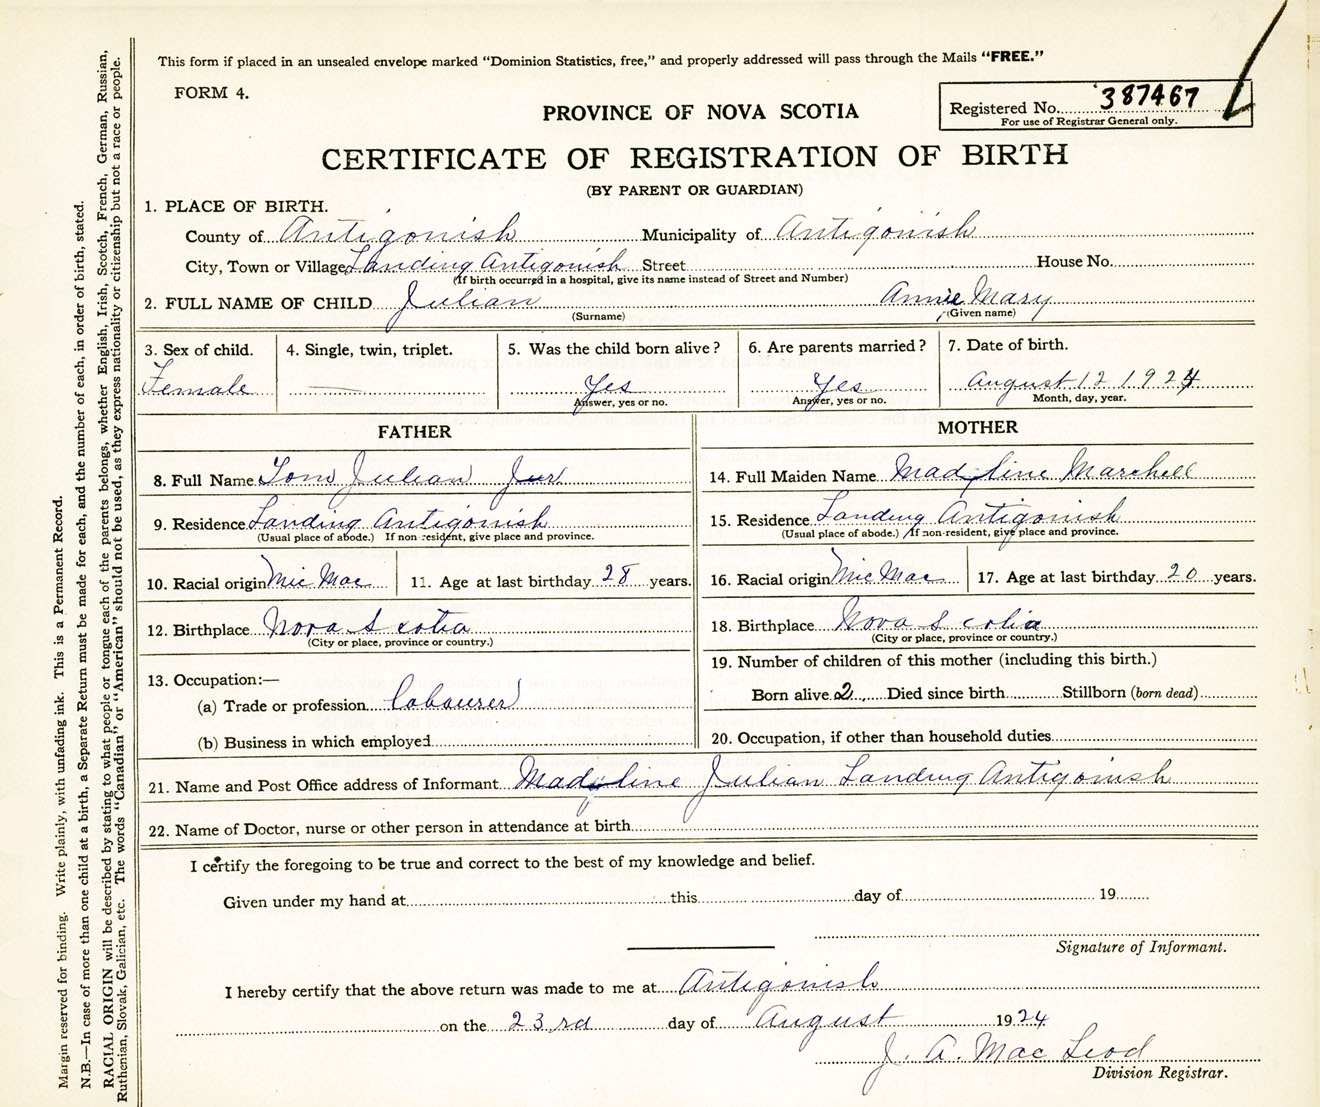 This form if placed in an unsealed envelope marked "Dominion Statistics, free," and properly addressed will pass through the Mails "FREE."
FORM 4.
Registered No. 387467
For use of Registrar General only.
PROVINCE OF NOVA SCOTIA
CERTIFICATE OF REGISTRATION OF BIRTH
(BY PARENT OR GUARDIAN)
1. PLACE OF BIRTH.
County of Antigonish Municipality of Antigonish
City, Town or Village Landing Antigonish Street House No.
(If birth occurred in a hospital, give its name instead of Street and Number)
2. FULL NAME OF CHILD Julian Annie Mary
(Surname) (Given name)
3. Sex of child. 4. Single, twin, triplet. 5. Was the child born alive? 6. Are parents married? 7. Date of birth.
Female Yes Yes August 12 1924
Answer, yes or no. Answer, yes or no. Month, day, year.
FATHER
8. Full Name Tom Julian Jur
9. Residence Landing Antigonish
(Usual place of abode.) If non resident, give place and province.
10. Racial origin Mic Mac 11. Age at last birthday 28 years.
12. Birthplace Nova Scotia
(City or place, province or country.)
13. Occupation:—
(a) Trade or profession labourer
(b) Business in which employed
MOTHER
14. Full Maiden Name Madeline Marchell
15. Residence Landing Antigonish
(Usual place of abode.) If non-resident, give place and province.
16. Racial origin Mic Mac 17. Age at last birthday 20 years.
18. Birthplace Nova Scotia
(City or place, province or country.)
19. Number of children of this mother (including this birth.)
Born alive 2 Died since birth Stillborn (born dead)
20. Occupation, if other than household duties
21. Name and Post Office address of Informant Madeline Julian Landing Antigonish
22. Name of Doctor, nurse or other person in attendance at birth
I certify the foregoing to be true and correct to the best of my knowledge and belief.
Given under my hand at this day of 19
Signature of Informant.
I hereby certify that the above return was made to me at Antigonish
on the 23rd day of August 1924
J. A. MacLeod
Division Registrar.
Margin reserved for binding. Write plainly, with unfading ink. This is a Permanent Record.
N.B.—In case of more than one child at a birth, a Separate Return must be made for each, and the number of each, in order of birth, stated.
RACIAL ORIGIN will be described by stating to what people or tongue each of the parents belongs, whether English, Irish, Scotch, French, German, Russian,
Ruthenian, Slovak, Galician, etc. The words "Canadian" or "American" should not be used, as they express nationality or citizenship but not a race or people.